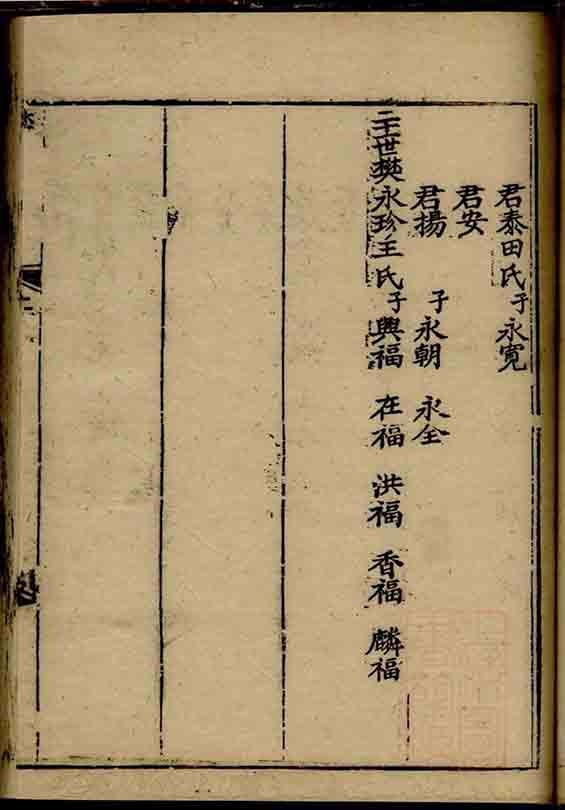 君泰田氏子永寛
君安
君揚 子永朝 永全
二十世樊永珍王氏子興福 在福 洪福 香福 麟福